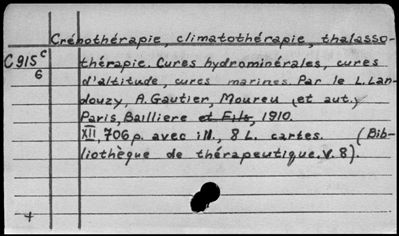 Crénothérapie, climatothérapie, thalasso-
C915c thérapie. Cures hydrominérales, cures
6 d'altitude, cures marines. Par le L. Lan-
douzy, A. Gautier, Moureu (et aut.)
Paris, Bailliere et Fils, 1910.
XII, 706 p. avec ill., 8 L. cartes. (Bib-
liothèque de thérapeutique. V. 8).
+